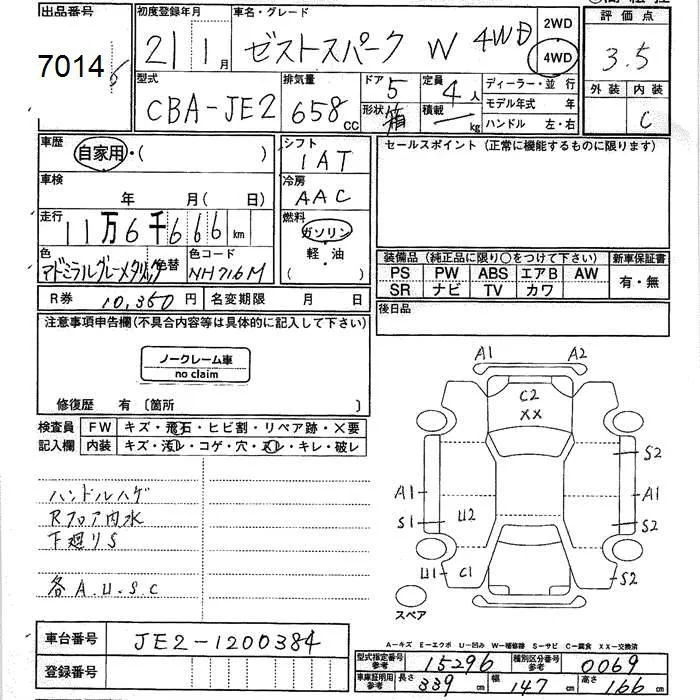 出品番号
7014
初度登録年月
21 1月
車名・グレード
ゼストスパーク W 4WD
2WD
4WD
評価点
3.5
外装 内装
C
型式
CBA-JE2
排気量
658 cc
ドア 5
形状 箱
定員 4 人
積載 kg
ディーラー・並行
モデル年式 年
ハンドル 左・右
車歴
自家用・( )
車検
年 月( 日)
走行
11万6千666km
色
アドミラルグレーメタリック 替
色コード
NH716M
シフト
IAT
冷房
AAC
燃料
ガソリン
軽・油
セールスポイント (正常に機能するものに限ります)
装備品 (純正品に限り○をつけて下さい)
PS PW ABS エアB AW
SR ナビ TV カワ
新車保証書
有・無
R券 10,350円
名変期限 月 日
後日品
注意事項申告欄(不具合内容等は具体的に記入して下さい)
ノークレーム車
no claim
修復歴 有〔箇所
検査員
記入欄
FW キズ・飛石・ヒビ割・リペア跡・×要
内装 キズ・汚レ・コゲ・穴・スレ・キレ・破レ
ハンドルハゲ
Rフロア内水
下廻りS
各A.U.S.C
A1 A2
C2
XX
S2
A1 A1
S1 U2 S2
U1 C1 S2
スペア
車台番号
JE2-1200384
登録番号
A-キズ E-エクボ U-凹み W-補修跡 S-サビ C-腐食 XX-交換済
型式指定番号
参考
15296
種別区分番号
参考
0069
車庫証明用
参考
長さ 339 cm
幅 147 cm
高さ 166 cm